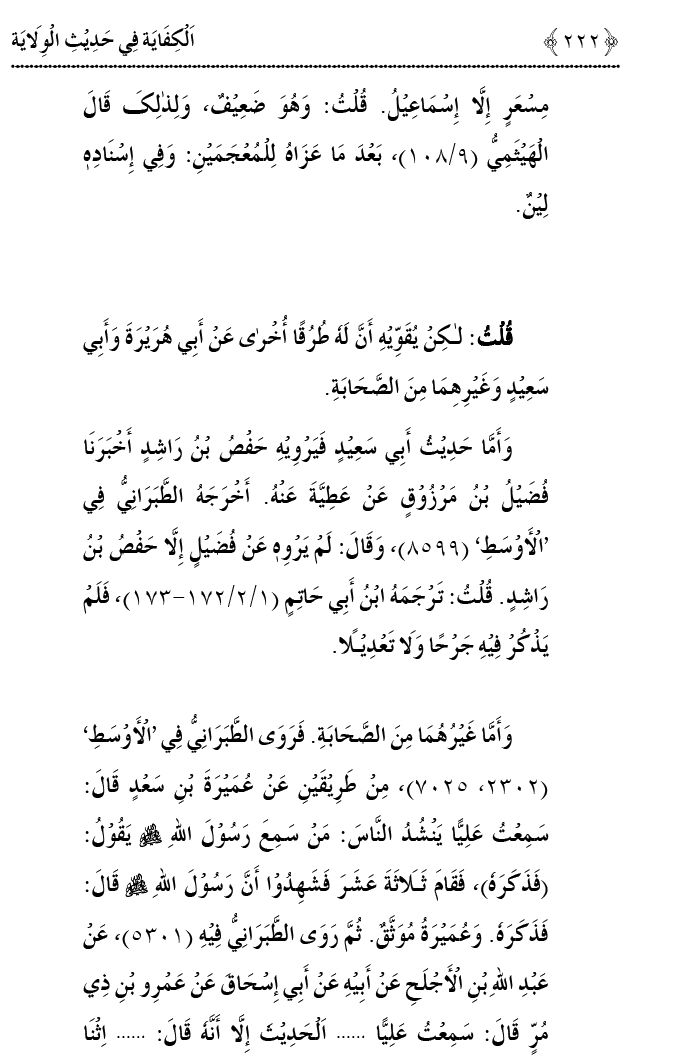 ﴿٢٢٢﴾ اَلْكِفَايَة فِي حَدِيْثِ الْوِلَايَة
مِسْعَرٍ إِلَّا إِسْمَاعِيْلُ. قُلْتُ: وَهُوَ ضَعِيْفٌ، وَلِذٰلِکَ قَالَ
الْهَيْثَمِيُّ (٩/١٠٨)، بَعْدَ مَا عَزَاهُ لِلْمُعْجَمَيْنِ: وَفِي إِسْنَادِهٖ
لِيْنٌ.
قُلْتُ: لٰـكِنْ يُقَوِّيْهِ أَنَّ لَهٗ طُرُقًا أُخْرٰى عَنْ أَبِي هُرَيْرَةَ وَأَبِي
سَعِيْدٍ وَغَيْرِهِمَا مِنَ الصَّحَابَةِ.
وَأَمَّا حَدِيْثُ أَبِي سَعِيْدٍ فَيَرْوِيْهِ حَفْصُ بْنُ رَاشِدٍ أَخْبَرَنَا
فُضَيْلُ بْنُ مَرْزُوْقٍ عَنْ عَطِيَّةَ عَنْهُ. أَخْرَجَهُ الطَّبَرَانِيُّ فِي
’الْأَوْسَطِ‘ (٨٥٩٩)، وَقَالَ: لَمْ يَرْوِهٖ عَنْ فُضَيْلٍ إِلَّا حَفْصُ بْنُ
رَاشِدٍ. قُلْتُ: تَرْجَمَهُ ابْنُ أَبِي حَاتِمٍ (١/٢/١٧٢-١٧٣)، فَلَمْ
يَذْكُرْ فِيْهِ جَرْحًا وَلَا تَعْدِيْـلًا.
وَأَمَّا غَيْرُهُمَا مِنَ الصَّحَابَةِ. فَرَوَى الطَّبَرَانِيُّ فِي ’الْأَوْسَطِ‘
(٢٣٠٢، ٧٠٢٥)، مِنْ طَرِيْقَيْنِ عَنْ عُمَيْرَةَ بْنِ سَعْدٍ قَالَ:
سَمِعْتُ عَلِيًّا يَنْشُدُ النَّاسَ: مَنْ سَمِعَ رَسُوْلَ اللهِ ﷺ يَقُوْلُ:
(فَذَكَرَهٗ)، فَقَامَ ثَـلَاثَةَ عَشَرَ فَشَهِدُوْا أَنَّ رَسُوْلَ اللهِ ﷺ قَالَ:
فَذَكَرَهٗ. وَعُمَيْرَةُ مُوَثَّقٌ. ثُمَّ رَوَى الطَّبَرَانِيُّ فِيْهِ (٥٣٠١)، عَنْ
عَبْدِ اللهِ بْنِ الْأَجْلَحِ عَنْ أَبِيْهِ عَنْ أَبِي إِسْحَاقَ عَنْ عَمْرِو بْنِ ذِي
مُرٍّ قَالَ: سَمِعْتُ عَلِيًّا ...... اَلْحَدِيْثَ إِلَّا أَنَّهٗ قَالَ: ...... اِثْنَا